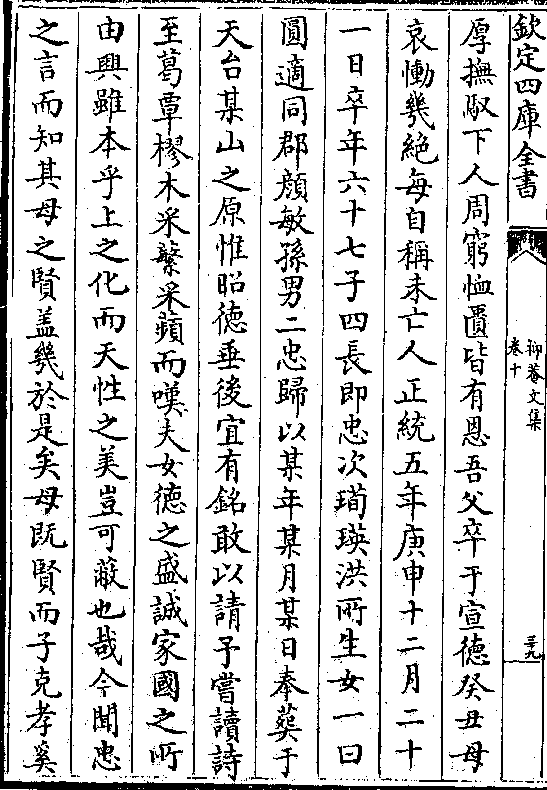 欽定四庫全書
抑菴文集
卷十
三十九
厚撫馭下人周窮恤匱皆有恩吾父卒于宣德癸丑母
哀慟幾絶每自稱未亡人正統五年庚申十二月二十
一日卒年六十七子四長即忠次珣瑛洪所生女一曰
圓適同郡顔敏孫男二忠歸以某年某月某日奉葬于
天台某山之原惟昭德垂後宜有銘敢以請予嘗讀詩
至葛覃樛木采蘩采蘋而嘆夫女德之盛誠家國之所
由興雖本乎上之化而天性之美豈可蔽也哉今聞忠
之言而知其母之賢盖幾於是矣母既賢而子克孝奚